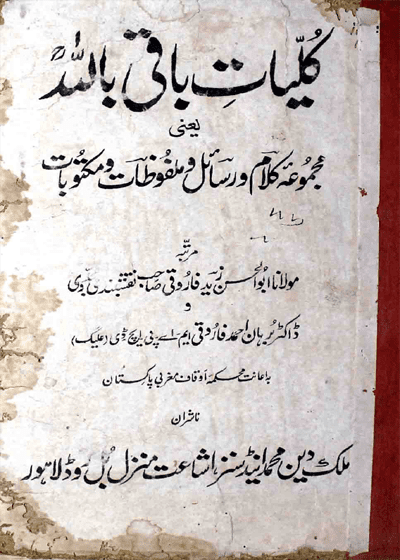 کُلّیاتِ باقی باللہؒ
یعنی
مجموعۂ کلام و رسائل و ملفوظات و مکتوبات
مرتبہ
مولانا ابوالحسن زید فاروقی صاحب نقشبندی مجددی
و
ڈاکٹر برہان احمد فاروقی ایم۔اے پی ایچ ڈی (علیگ)
باعانت محکمہ اوقاف مغربی پاکستان
ناشران
ملک دین محمد اینڈ سنز اشاعت منزل بُل روڈ لاہور